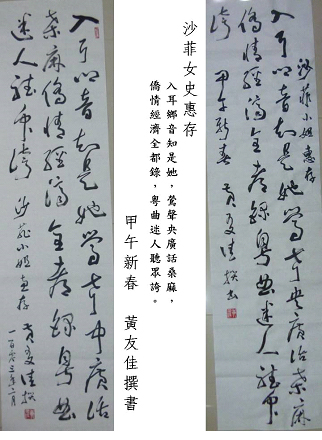 沙菲小姐惠存
入耳鄉音知是她鶯聲央廣話桑麻
僑情經濟全都錄粵曲迷人聽眾
誇 甲午新春 黃友佳撰書
沙菲女史惠存
入耳鄉音知是她，鶯聲央廣話桑麻，
僑情經濟全都錄，粵曲迷人聽眾誇。
甲午新春 黃友佳撰書
入耳鄉音知是她鶯聲央廣話
桑麻僑情經濟全都錄粵曲
迷人聽眾誇 沙菲小姐惠存 黃友佳撰
一百零三年二月